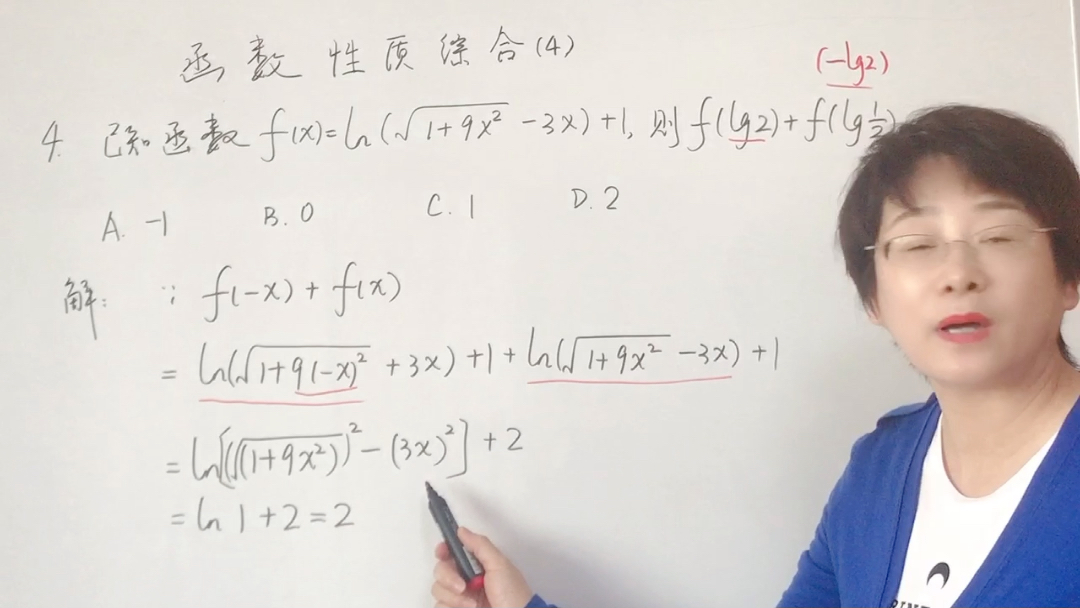 函数性质综合(4)
(-lg2)
4. 已知函数 f(x)=ln(√(1+9x²) -3x)+1, 则 f(lg2)+f(lg½)
A. -1 B. 0 C. 1 D. 2
解: ∵ f(-x)+f(x)
= ln(√(1+9(-x)²) +3x)+1+ln(√(1+9x²) -3x)+1
= ln[(√(1+9x²))² -(3x)²]+2
= ln 1+2=2